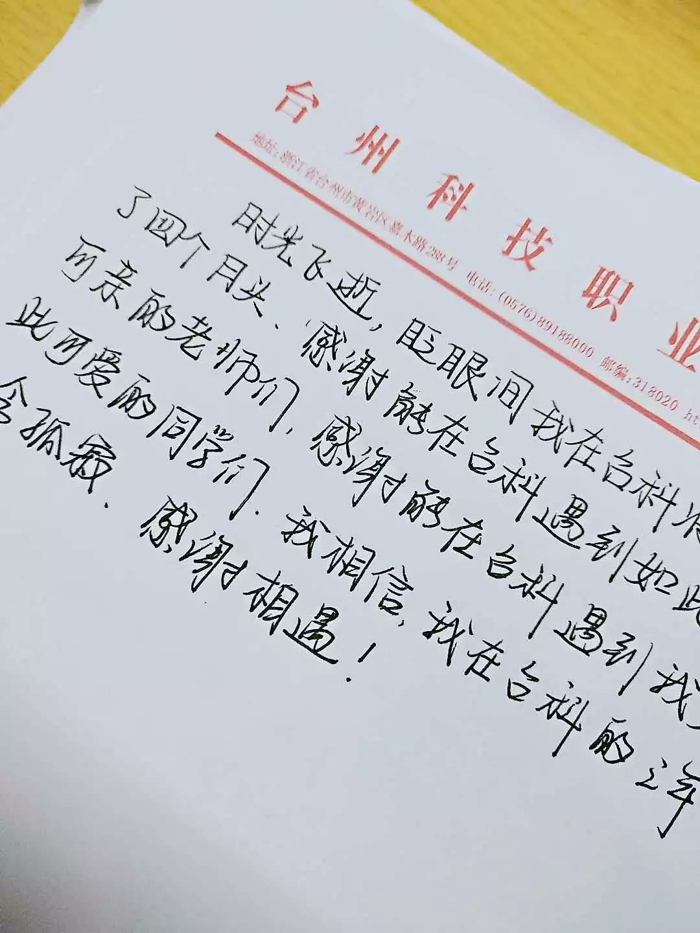 台州科技职业
地址:浙江省台州市黄岩区嘉木路288号 电话:(0576)89188000 邮编:318020 ht
时光飞逝，眨眼间我在台科
了四个月头、感谢能在台科遇到如此
可亲的老师们，感谢能在台科遇到我
此可爱的同学们．我相信，我在台科的三年
会孤寂．感谢相遇！